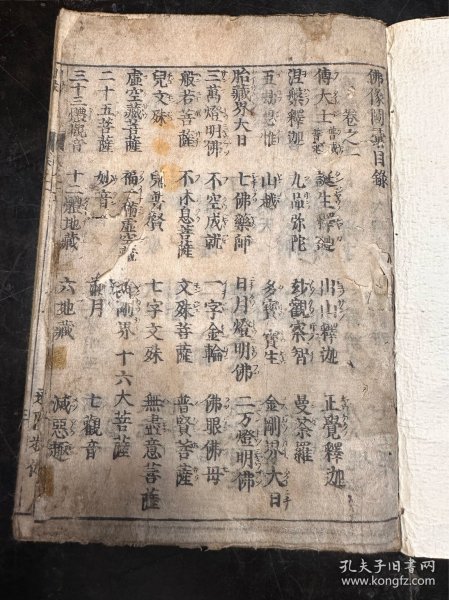 佛像圖彙目錄
卷之二
傅大士 誕生釋迦 出山釋迦 正覺釋迦
涅槃釋迦 九品弥陀 妙觀察智 曼荼羅
五劫思惟 山越 多寶 寶生 金剛界大日
胎藏界大日 七佛藥師 日月燈明佛 二万燈明佛
三萬燈明佛 不空成就 一字金輪 佛眼佛母
般若菩薩 不休息菩薩 文殊菩薩 普賢菩薩
兒文殊 兒普賢 七字文殊 無盡意菩薩
虚空藏菩薩 福 虚空 金剛界十六大菩薩
二十五菩薩 妙音 月 七觀音
三十三體觀音 十二 地藏 六地藏 滅惡趣
孔夫子旧书网
www.kongfz.com